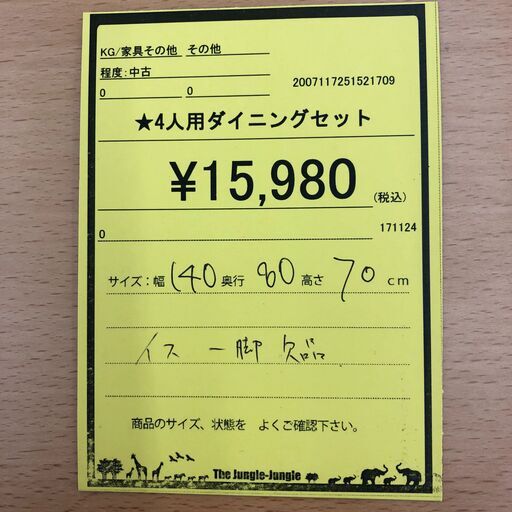 KG/家具その他 その他
程度:中古
0 0 2007117251521709
★4人用ダイニングセット
¥15,980 (税込)
0 171124
サイズ:幅 140 奥行 80 高さ 70 cm
イス 一脚 欠品
商品のサイズ、状態を よくご確認下さい。
The Jungle-Jungle